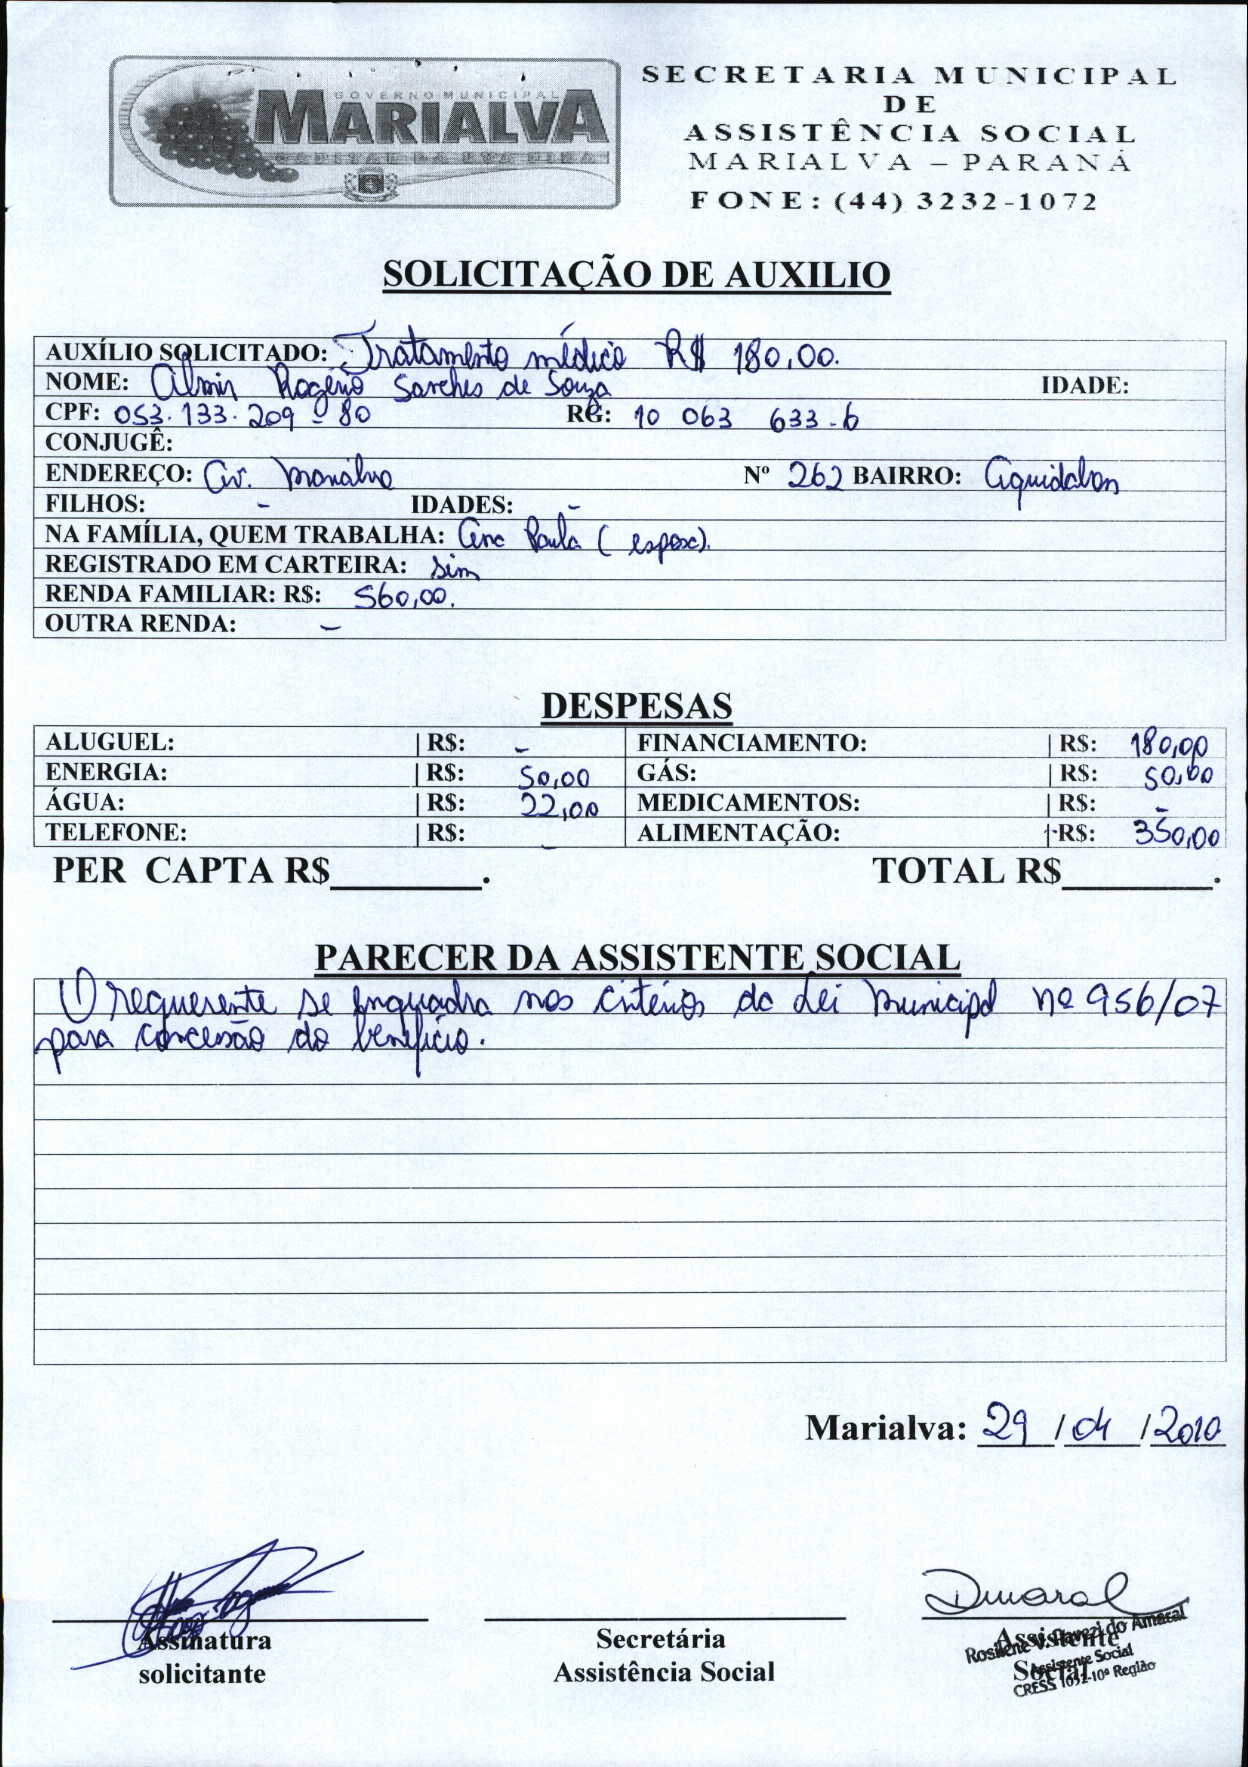 GOVERNO MUNICIPAL
MARIALVA
CAPITAL DA UVA FINA
SECRETARIA MUNICIPAL
DE
ASSISTÊNCIA SOCIAL
MARIALVA – PARANÁ
FONE: (44) 3232-1072
SOLICITAÇÃO DE AUXILIO
AUXÍLIO SOLICITADO: Tratamento médico R$ 180,00.
NOME: Almir Rogério Sanches de Souza IDADE:
CPF: 053.133.209-80 RG: 10 063 633-6
CONJUGÊ:
ENDEREÇO: Av. Marialva Nº 262 BAIRRO: Aquidaban
FILHOS: - IDADES: -
NA FAMÍLIA, QUEM TRABALHA: Ana Paula (esposa).
REGISTRADO EM CARTEIRA: sim
RENDA FAMILIAR: R$: 560,00.
OUTRA RENDA: -
DESPESAS
ALUGUEL: | R$: - FINANCIAMENTO: | R$: 180,00
ENERGIA: | R$: 50,00 GÁS: | R$: 50,00
ÁGUA: | R$: 22,00 MEDICAMENTOS: | R$: -
TELEFONE: | R$: - ALIMENTAÇÃO: | R$: 350,00
PER CAPTA R$________. TOTAL R$________.
PARECER DA ASSISTENTE SOCIAL
O requerente se enquadra nos critérios da Lei Municipal nº 956/07
para concessão do benefício.
Marialva: 29 / 04 / 2010
Amaral
Assinatura
solicitante
Secretária
Assistência Social
Assistente
Social
Rosilene V. Pavezi do Amaral
Assistente Social
CRESS 1052-10ª Região